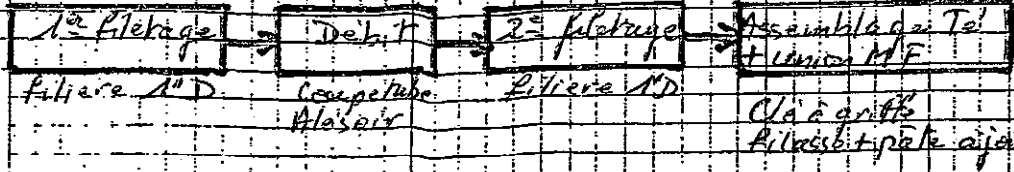 1er filetage Débit 2e filetage Assemblage Té
+ union M/F
filière 1"D Coupe tube filière 1"D Clé à griffe
Alésoir filasse + pâte à